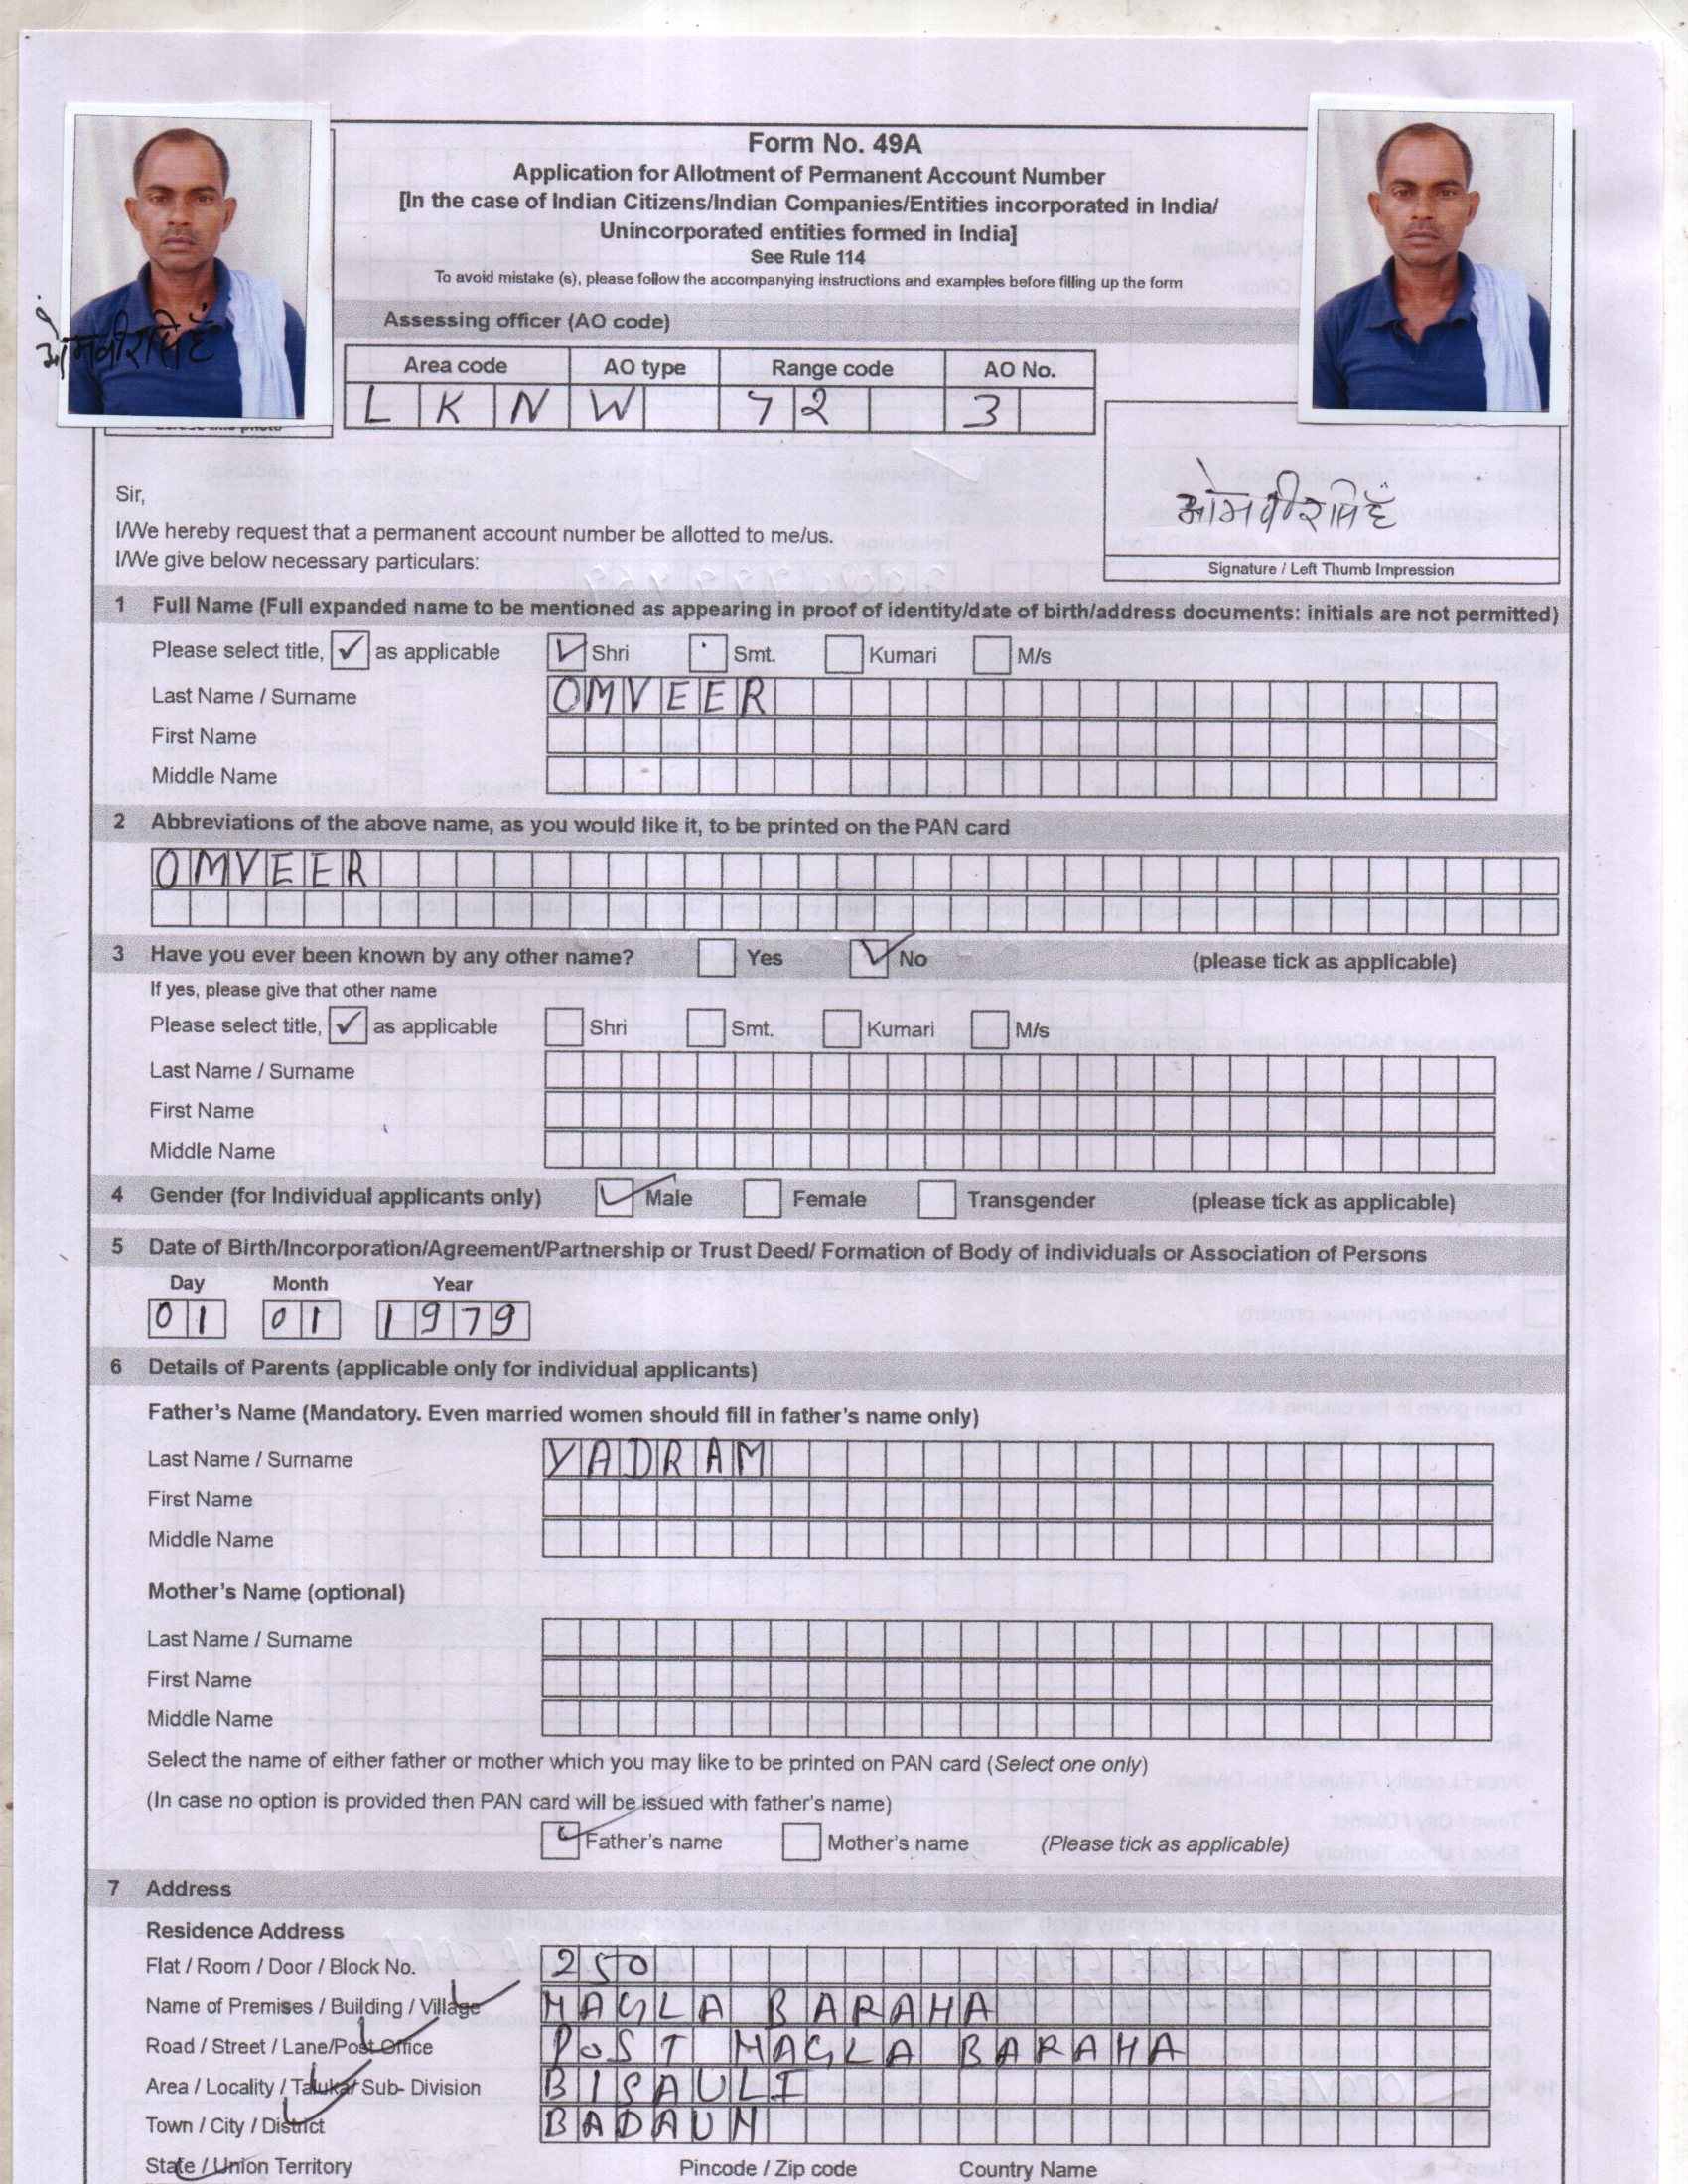 Form No. 49A
Application for Allotment of Permanent Account Number
[In the case of Indian Citizens/Indian Companies/Entities incorporated in India/
Unincorporated entities formed in India]
See Rule 114
To avoid mistake (s), please follow the accompanying instructions and examples before filling up the form
Assessing officer (AO code)
Area code AO type Range code AO No.
L K N W 72 3
ओमवीरसिहँ
across this photo
ओमवीरसिहँ
Signature / Left Thumb Impression
Sir,
I/We hereby request that a permanent account number be allotted to me/us.
I/We give below necessary particulars:
1 Full Name (Full expanded name to be mentioned as appearing in proof of identity/date of birth/address documents: initials are not permitted)
Please select title, ✓ as applicable ✓ Shri Smt. Kumari M/s
Last Name / Surname OMVEER
First Name
Middle Name
2 Abbreviations of the above name, as you would like it, to be printed on the PAN card
OMVEER
3 Have you ever been known by any other name? Yes ✓ No (please tick as applicable)
If yes, please give that other name
Please select title, ✓ as applicable Shri Smt. Kumari M/s
Last Name / Surname
First Name
Middle Name
4 Gender (for Individual applicants only) ✓ Male Female Transgender (please tick as applicable)
5 Date of Birth/Incorporation/Agreement/Partnership or Trust Deed/ Formation of Body of individuals or Association of Persons
Day Month Year
01 01 1979
6 Details of Parents (applicable only for individual applicants)
Father's Name (Mandatory. Even married women should fill in father's name only)
Last Name / Surname YADRAM
First Name
Middle Name
Mother's Name (optional)
Last Name / Surname
First Name
Middle Name
Select the name of either father or mother which you may like to be printed on PAN card (Select one only)
(In case no option is provided then PAN card will be issued with father's name)
✓ Father's name Mother's name (Please tick as applicable)
7 Address
Residence Address
Flat / Room / Door / Block No. 250
Name of Premises / Building / Village NAGLA BARAHA
Road / Street / Lane/Post Office POST NAGLA BARAHA
Area / Locality / Taluka/ Sub- Division BISAULI
Town / City / District BADAUN
State / Union Territory Pincode / Zip code Country Name